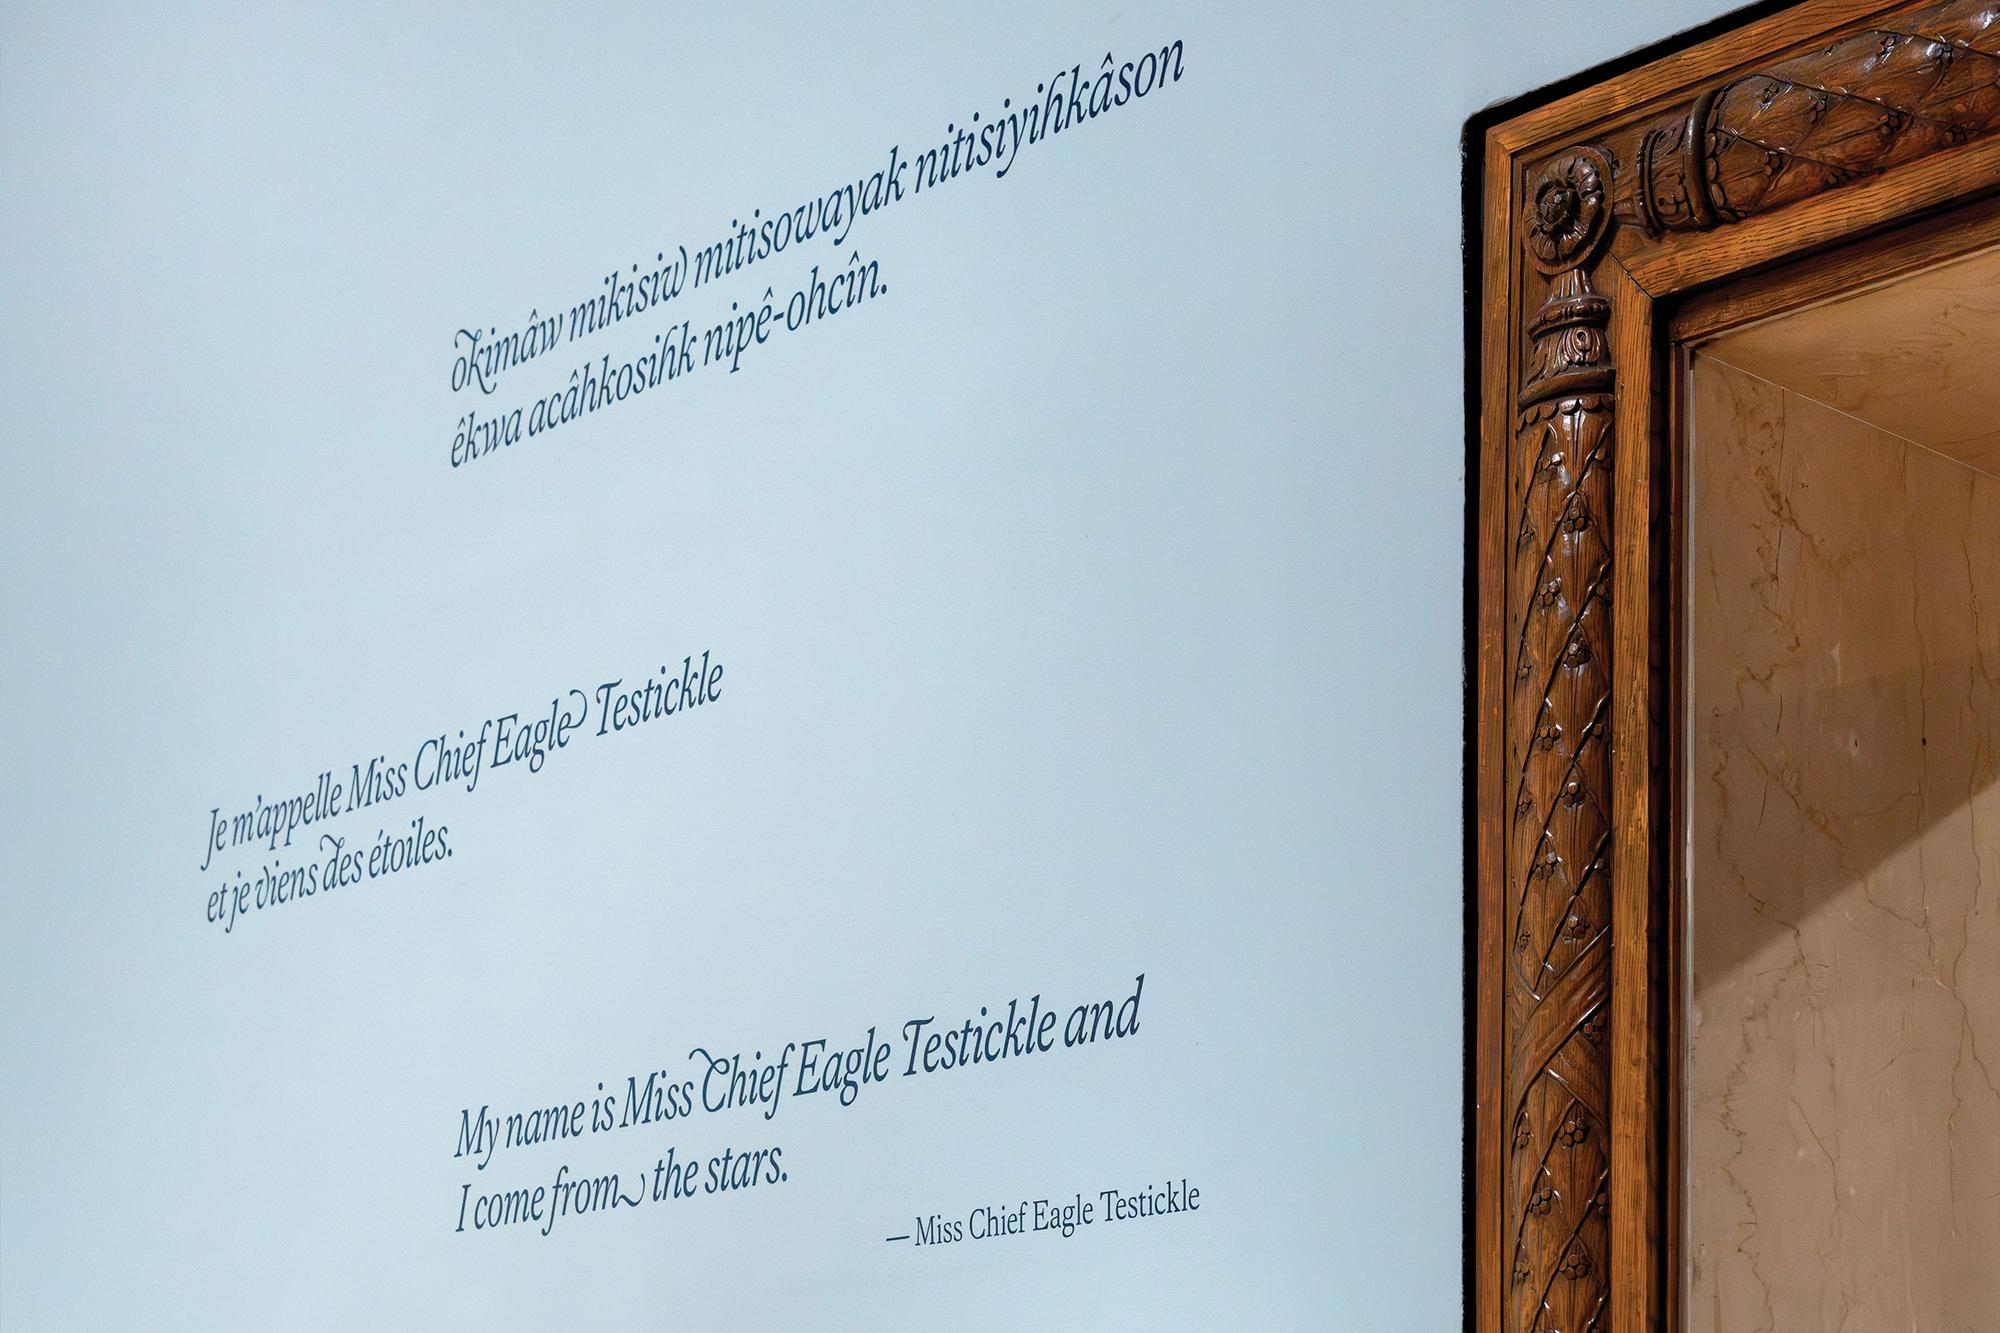 okimâw mikisiw mitisowayak nitisiyihkâson
êkwa acâhkosihk nipê-ohcîn.
Je m'appelle Miss Chief Eagle Testickle
et je viens des étoiles.
My name is Miss Chief Eagle Testickle and
I come from the stars.
—Miss Chief Eagle Testickle